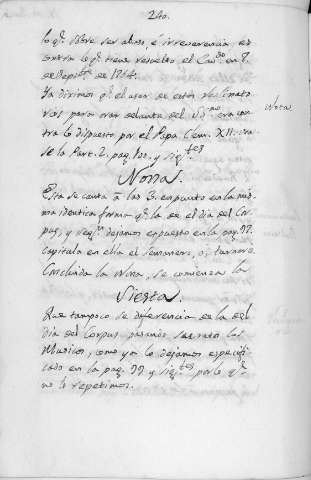 240.
lo qe. sobre ser abuso, é irreverencia es
contra lo qe. tiene resuelto el Cavdo en 7.
de Sepbre de 1764.
Ya diximos qe. el usar de estos reclinato
rios para orar delante del Ssmo era con
tra lo dispuesto por el Papa Clem. XII.
se la Part. 2. pag. y sigtes
Nota
Nona.
Esta se canta á las 3. en punto en la mis
ma identica forma qe. la de el dia del Cor
pus, y segn. dejamos expuesto en la pag. 77.
capitula en ella el Semanero, ó, turnario.
Concluida la Nona, se comienza la
Siesta.
Que tampoco se diferencia de la del
dia del Corpus, pasando sus ratos los
Musicos, como ya lo dejamos especifi
cado en la pag. 77 y sigtes por lo qe.
no lo repetimos.